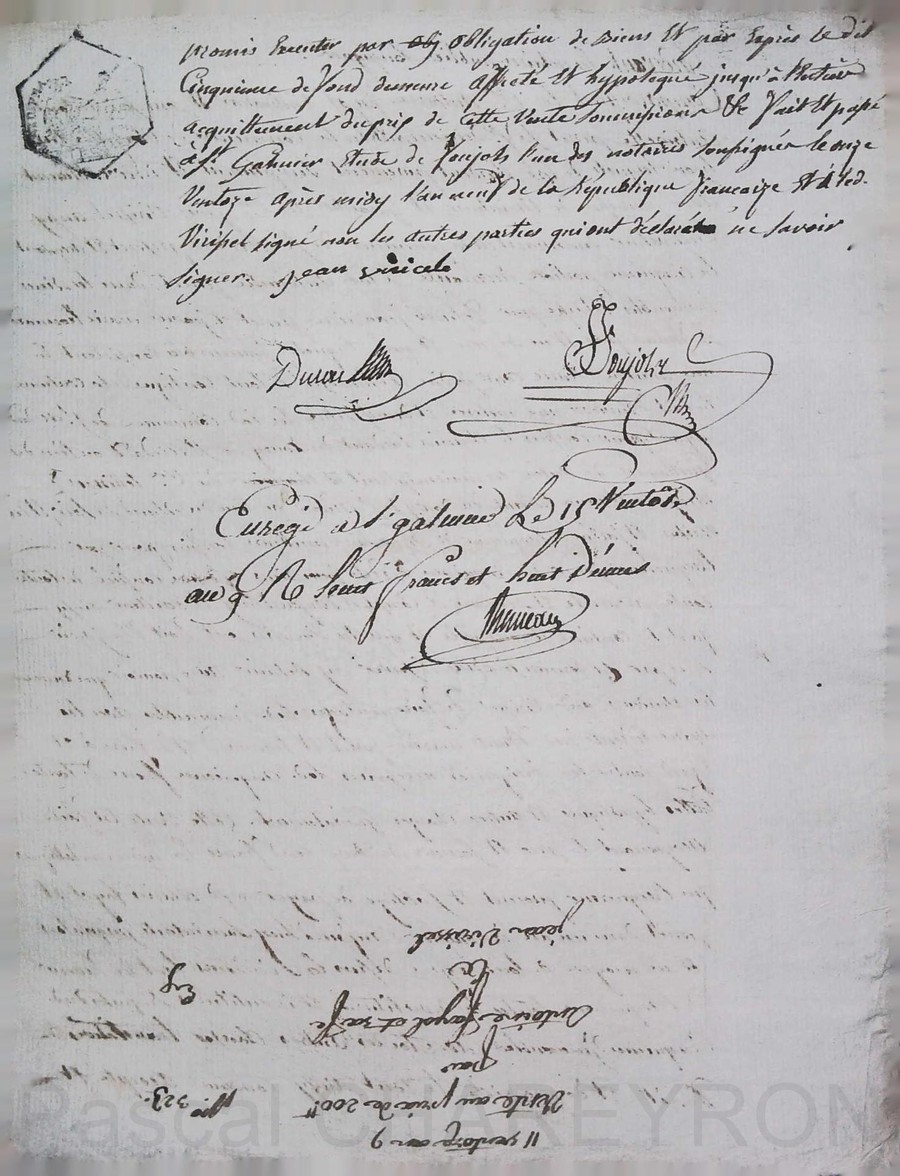 promis Executer par obligation de Biens Et par Exprès le dit
Cinquieme de fond demeure affecté Et hypotequé jusqu'à l'Entier
acquittement du prix de cette Vente soumissions &c fait Et passé
à St Galmier Etude de Soujols l'un des notaires soussignés le onze
Ventose après midy l'an neuf de la République francaise Et à led.
Viricel signé non les autres parties qui ont déclaré ne savoir
signer. jean viricele
Soujols
Enregé a St galmier Le 15 Ventose
an 9 R huit francs et huit Décimes
11 ventose an 9
Vente au prix de 200tt
No 323.
par
Antoine fayol et sa fe
à
jean Viricel
Eg
Pascal CHAREYRON